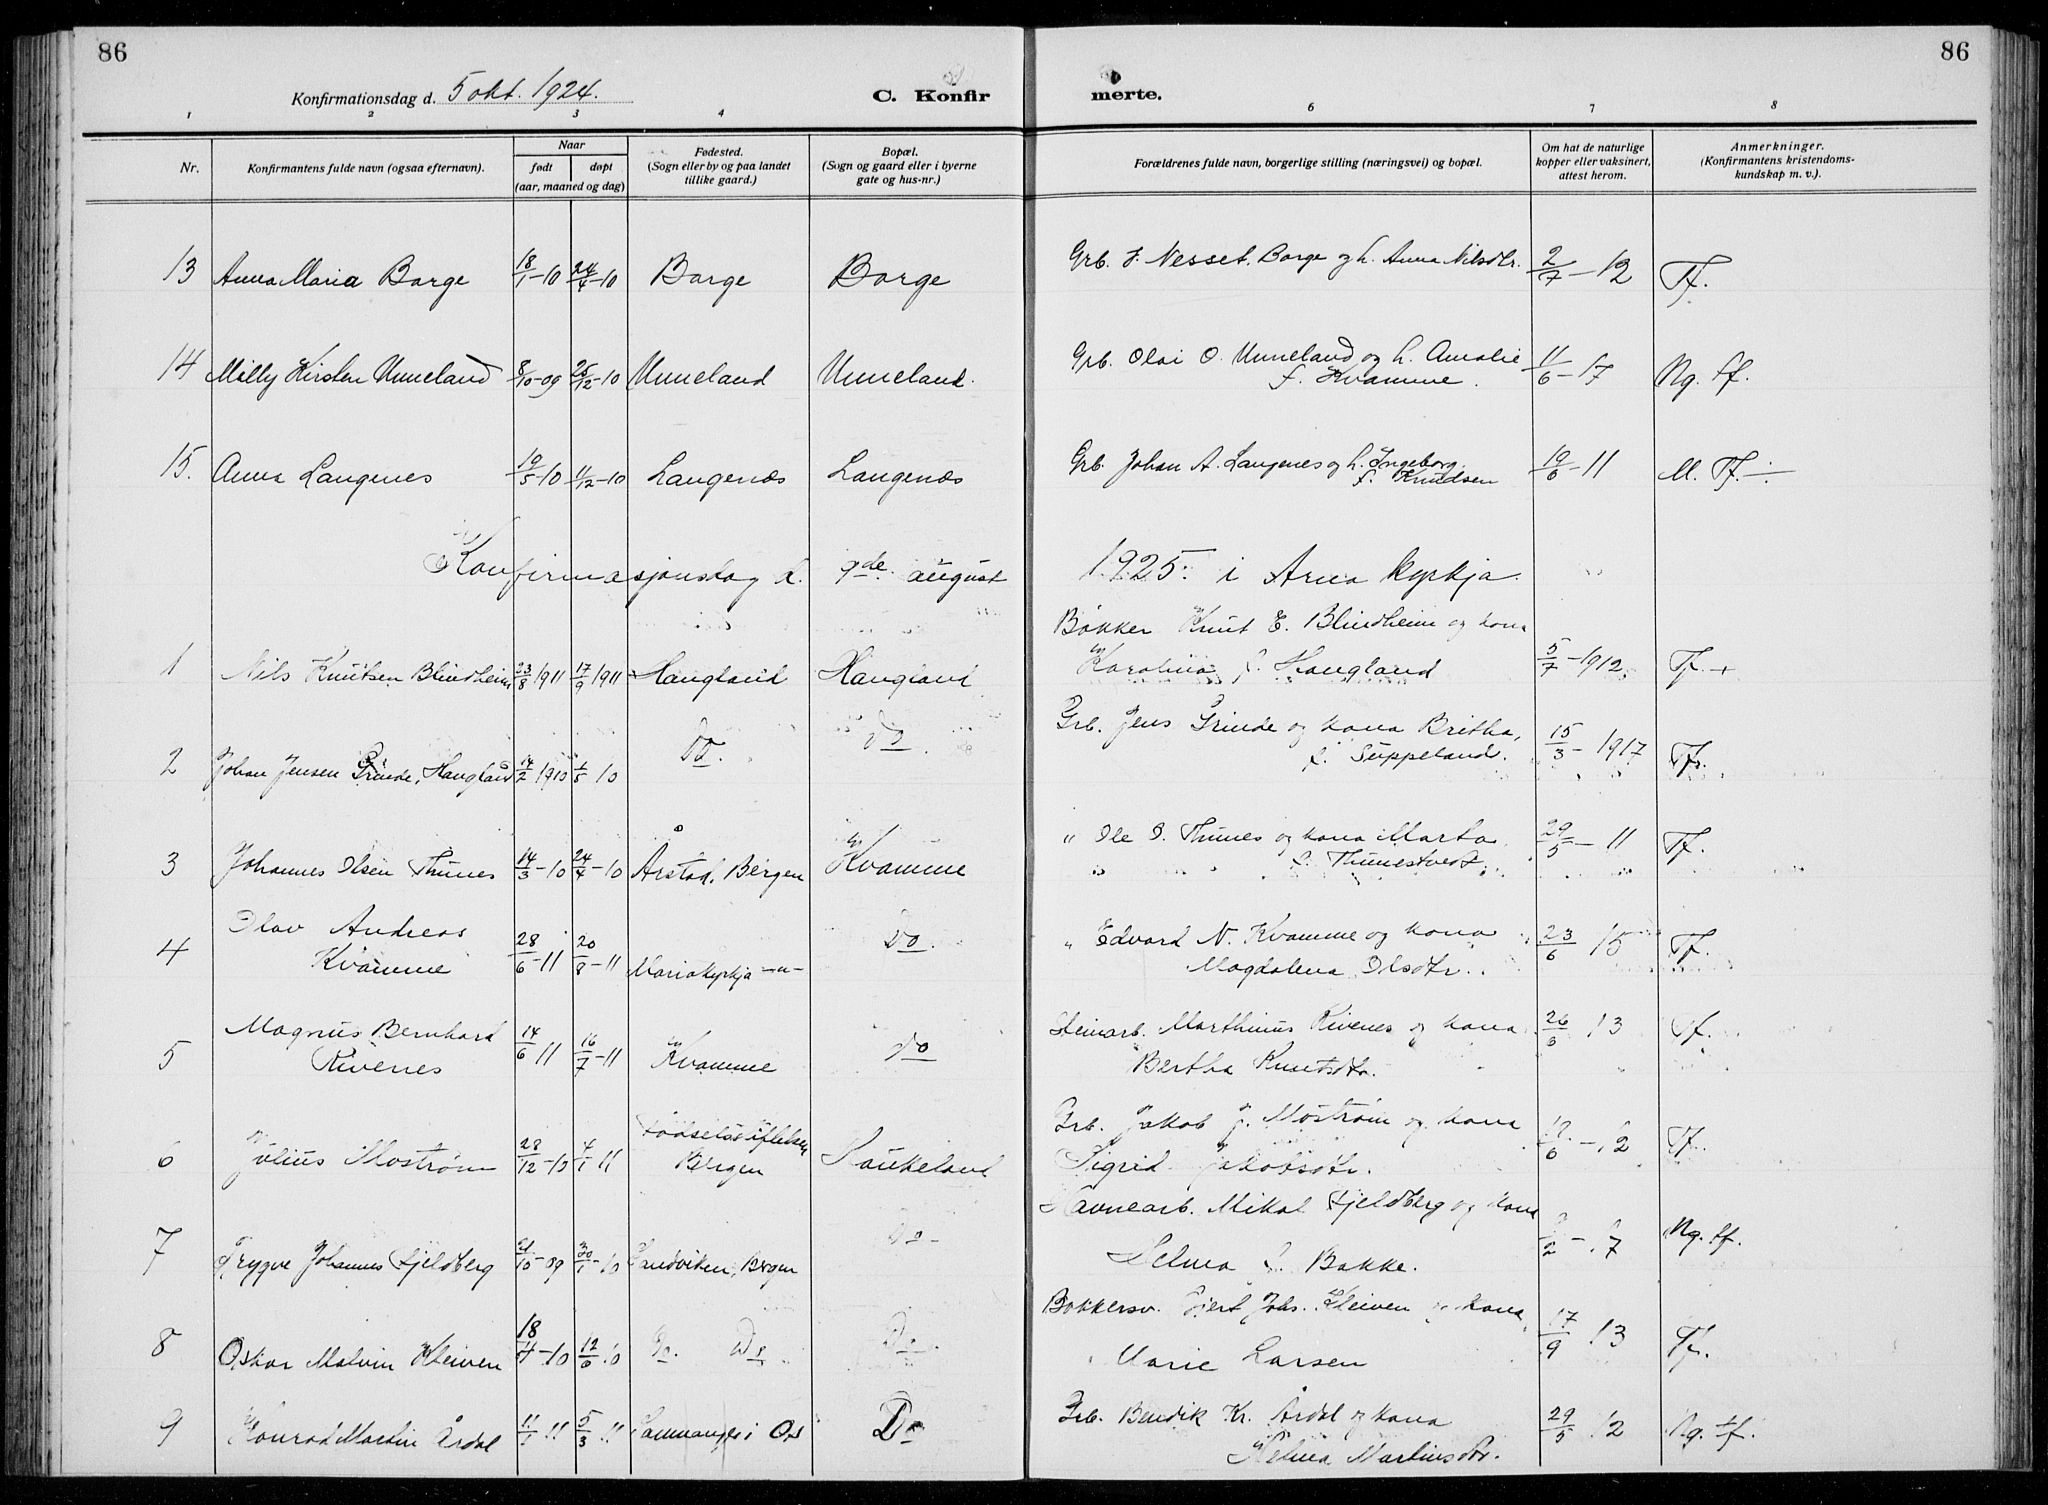 86
86
Konfirmationsdag d. 5 okt. 1924.
C. Konfir
merte.
1 2 3 4 6 7 8
Nr.
Konfirmantens fulde navn (ogsaa efternavn).
Naar
født døpt
(aar, maaned og dag)
Fødested.
(Sogn eller by og paa landet
tillike gaard.)
Bopæl.
(Sogn og gaard eller i byerne
gate og hus-nr.)
Forældrenes fulde navn, borgerlige stilling (næringsvei) og bopæl.
Om hat de naturlige
kopper eller vaksinert,
attest herom.
Anmerkninger.
(Konfirmantens kristendoms-
kundskap m. v.).
13 Anna Maria Borge 18/1-10 24/4-10 Borge Borge Grb. J. Nesset, Borge og h. Anna Nilsdtr. 2/7-12 Tf.
14 Milly Kirsten Unneland 8/10-09 26/12-10 Unneland Unneland. Grb. Olai O. Unneland og h. Amalie 11/6-17 Ng. tf.
f. Kvamme.
15. Anna Langenes 19/5-10 11/12-10 Langenæs Langenæs Grb. Johan A. Langenes og h. Ingeborg 19/6-11 M. Tf. -:-
f. Knudsen
Konfirmasjonsdag d. 9de august 1925: i Arna kyrkja.
Bøkker Knut E. Blindheim og kona
1 Nils Knutsen Blindheim 23/8 1911 17/9 1911 Haugland Haugland Karolina f. Haugland 5/7-1912. Tf. +
Grb. Jens Grinde og kona Britha,
2 Johan Jensen Grinde, Haugland 14/2 1910 1/5 10 Do. Do. f. Seppeland. 15/3-1917 Tf.
3 Johannes Olsen Thunes 14/3-10 24/4-10 Årstad, Bergen Kvamme " Ole O. Thunes og kona Marta 29/5-11 Tf.
f. Thunestvedt.
4 Olav Andreas
Kvamme 28/6-11 20/8-11 Mariakyrkja -"- Do. " Edvard N. Kvamme og kona 23/6 15 Tf.
Magdalena Olsdtr.
5 Magnus Bernhard
Rivenes 14/6 11 16/7-11 Kvamme Do Steinarb. Marthinus Rivenes og kona 26/6 13 Tf.
Bertha Knutsdtr.
6 Julius Mostrøm 28/12-10 4/1 11 Fødselsstiftelsen
Bergen Haukeland Grb. Jakob J. Mostrøm og kona 12 Tf.
Sigrid Jakobsdtr.
7 Trygve Johannes Fjeldberg 21/10-09 30/1-10 Sandviken, Bergen Do- Havnearb. Mikal Fjeldberg og kona Ng. tf.
Selma f. Bakke.
8 Oskar Malvin Kleiven 18/4-10 12/6 10 Do. Do. Do. Bøkkersv. Gjert Johs. Kleiven og kona 17/9 13 Tf.
Marie Larsen
9 Konrad Martin Årdal 11/1 11 5/3 11 Samnanger i Os Do Grb. Bendik Kr. Årdal og kona 29/5 12 Ng. tf.
Helma Martinsdtr.